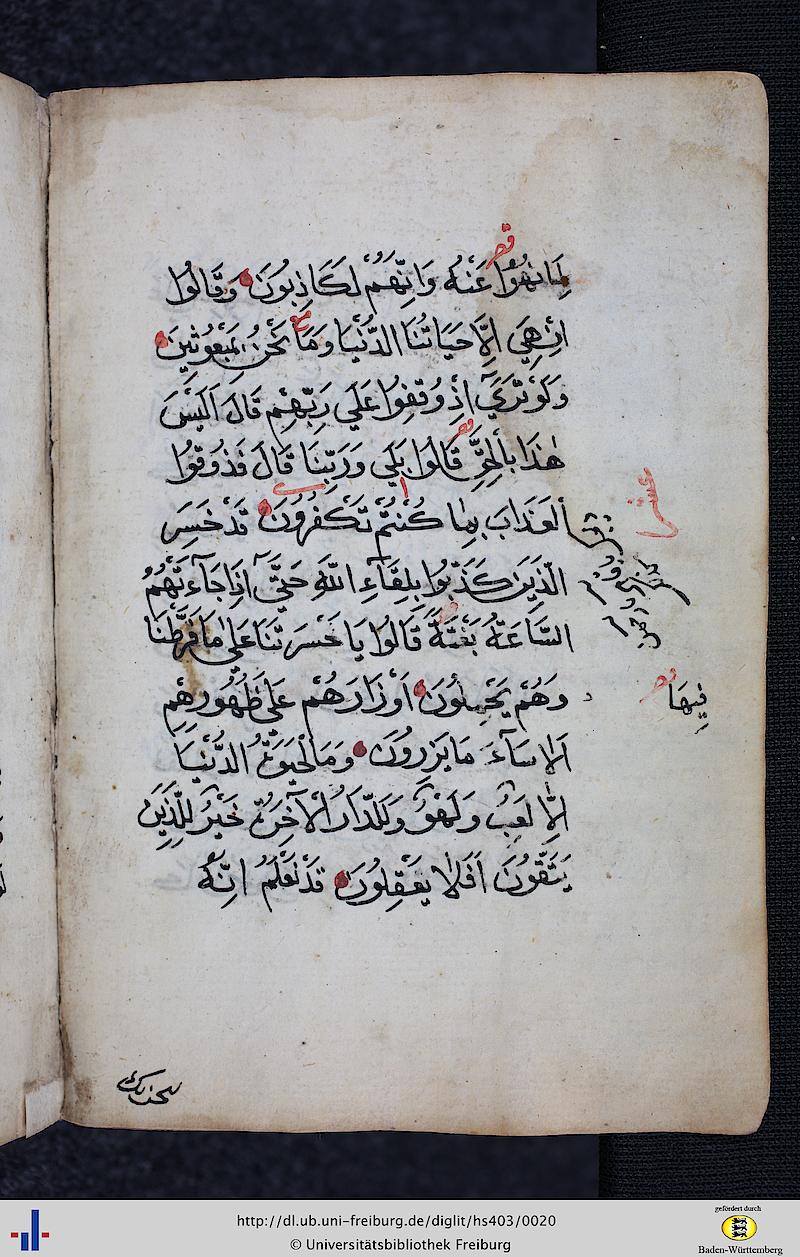 لِمَا نُهُوا عَنْهُ وَاِنَّهُمْ لَكَاذِبُونَ وَقَالُوا
اِنْ هِيَ اِلَّا حَيَاتُنَا الدُّنْيَا وَمَا نَحْنُ بِمَبْعُوثِينَ
وَلَوْ تَرٰيٓ اِذْ وُقِفُوا عَلٰي رَبِّهِمْ قَالَ اَلَيْسَ
هٰذَا بِالْحَقِّ قَالُوا بَلٰي وَرَبِّنَا قَالَ فَذُوقُوا
الْعَذَابَ بِمَا كُنْتُمْ تَكْفُرُونَ قَدْ خَسِرَ
الَّذِينَ كَذَّبُوا بِلِقَآءِ اللّٰهِ حَتّٰٓي اِذَا جَآءَتْهُمُ
السَّاعَةُ بَغْتَةً قَالُوا يَا حَسْرَتَنَا عَلٰي مَا فَرَّطْنَا
فِيهَا
وَهُمْ يَحْمِلُونَ اَوْزَارَهُمْ عَلٰي ظُهُورِهِمْ
اَلَا سَآءَ مَا يَزِرُونَ وَمَا الْحَيٰوةُ الدُّنْيَا
اِلَّا لَعِبٌ وَلَهْوٌ وَلَلدَّارُ الْاٰخِرَةُ خَيْرٌ لِلَّذِينَ
يَتَّقُونَ اَفَلَا يَعْقِلُونَ قَدْ نَعْلَمُ اِنَّهُ
عشر
ليحزنك
http://dl.ub.uni-freiburg.de/diglit/hs403/0020
© Universitätsbibliothek Freiburg
gefördert durch
Baden-Württemberg